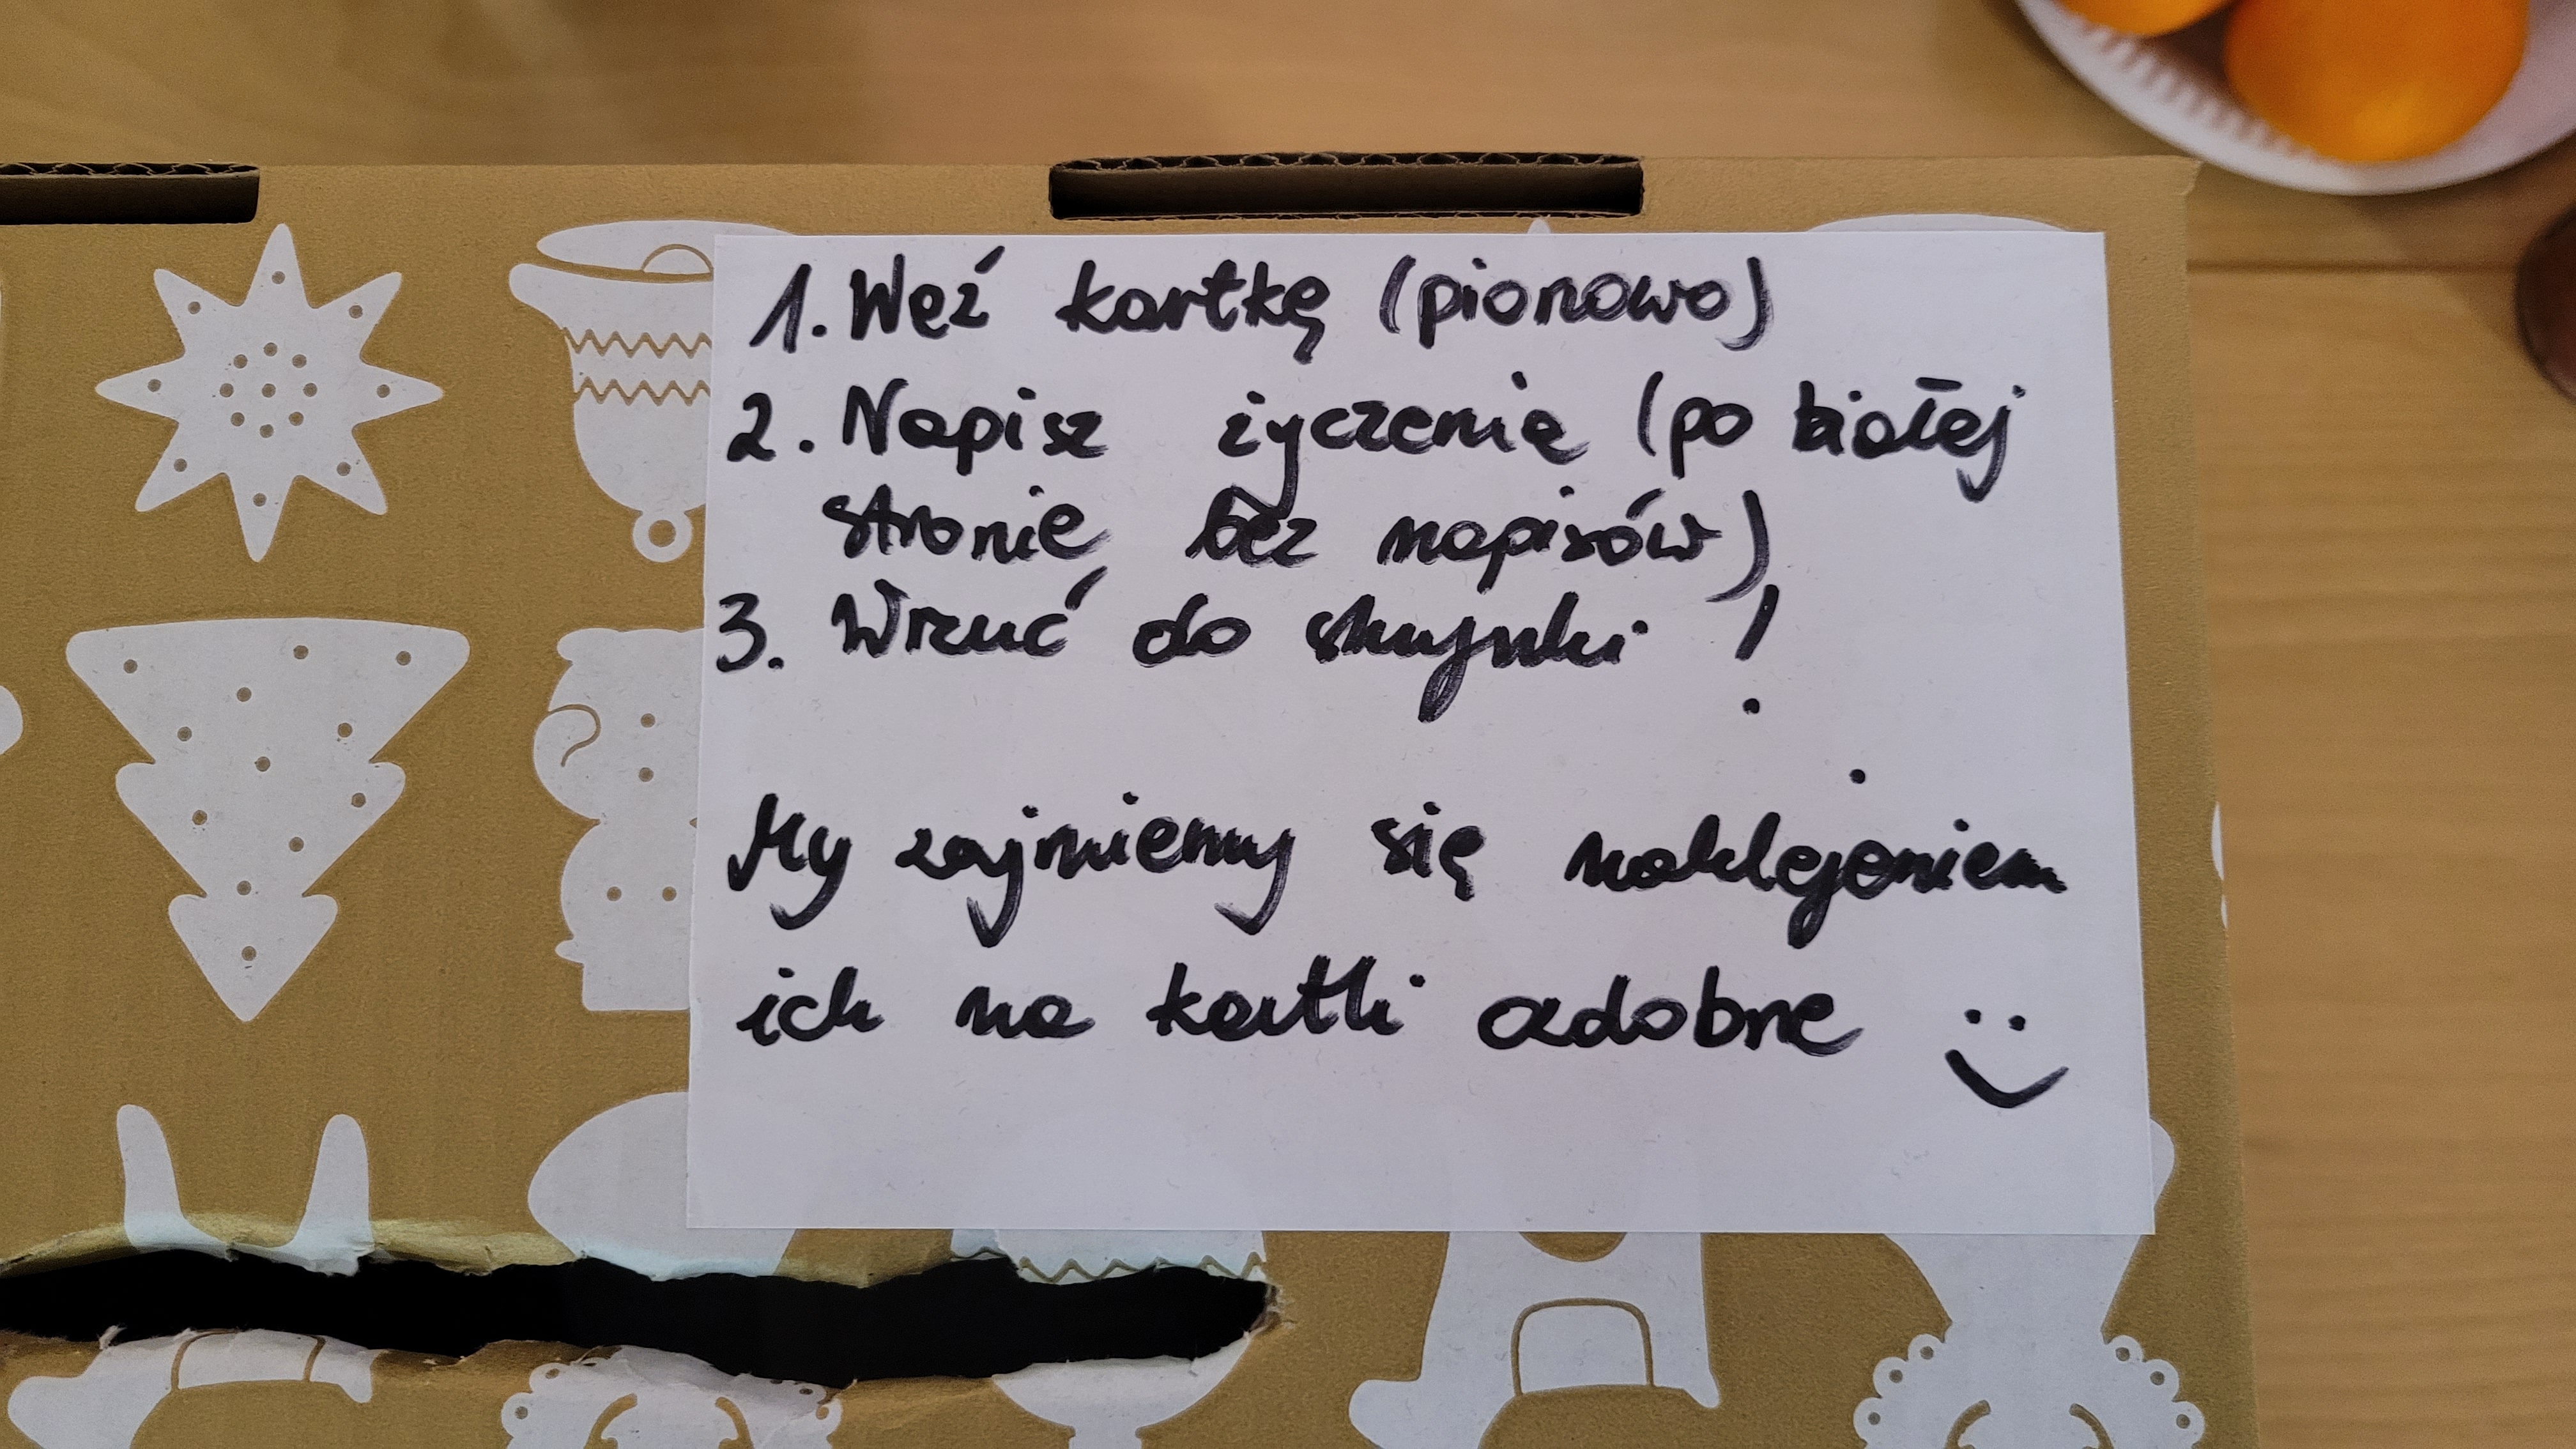 1. Weź kartkę (pionowo)
2. Napisz życzenie (po białej
stronie bez napisów)
3. Wrzuć do skrzynki !
My zajmiemy się naklejeniem
ich na kartki ozdobne :)